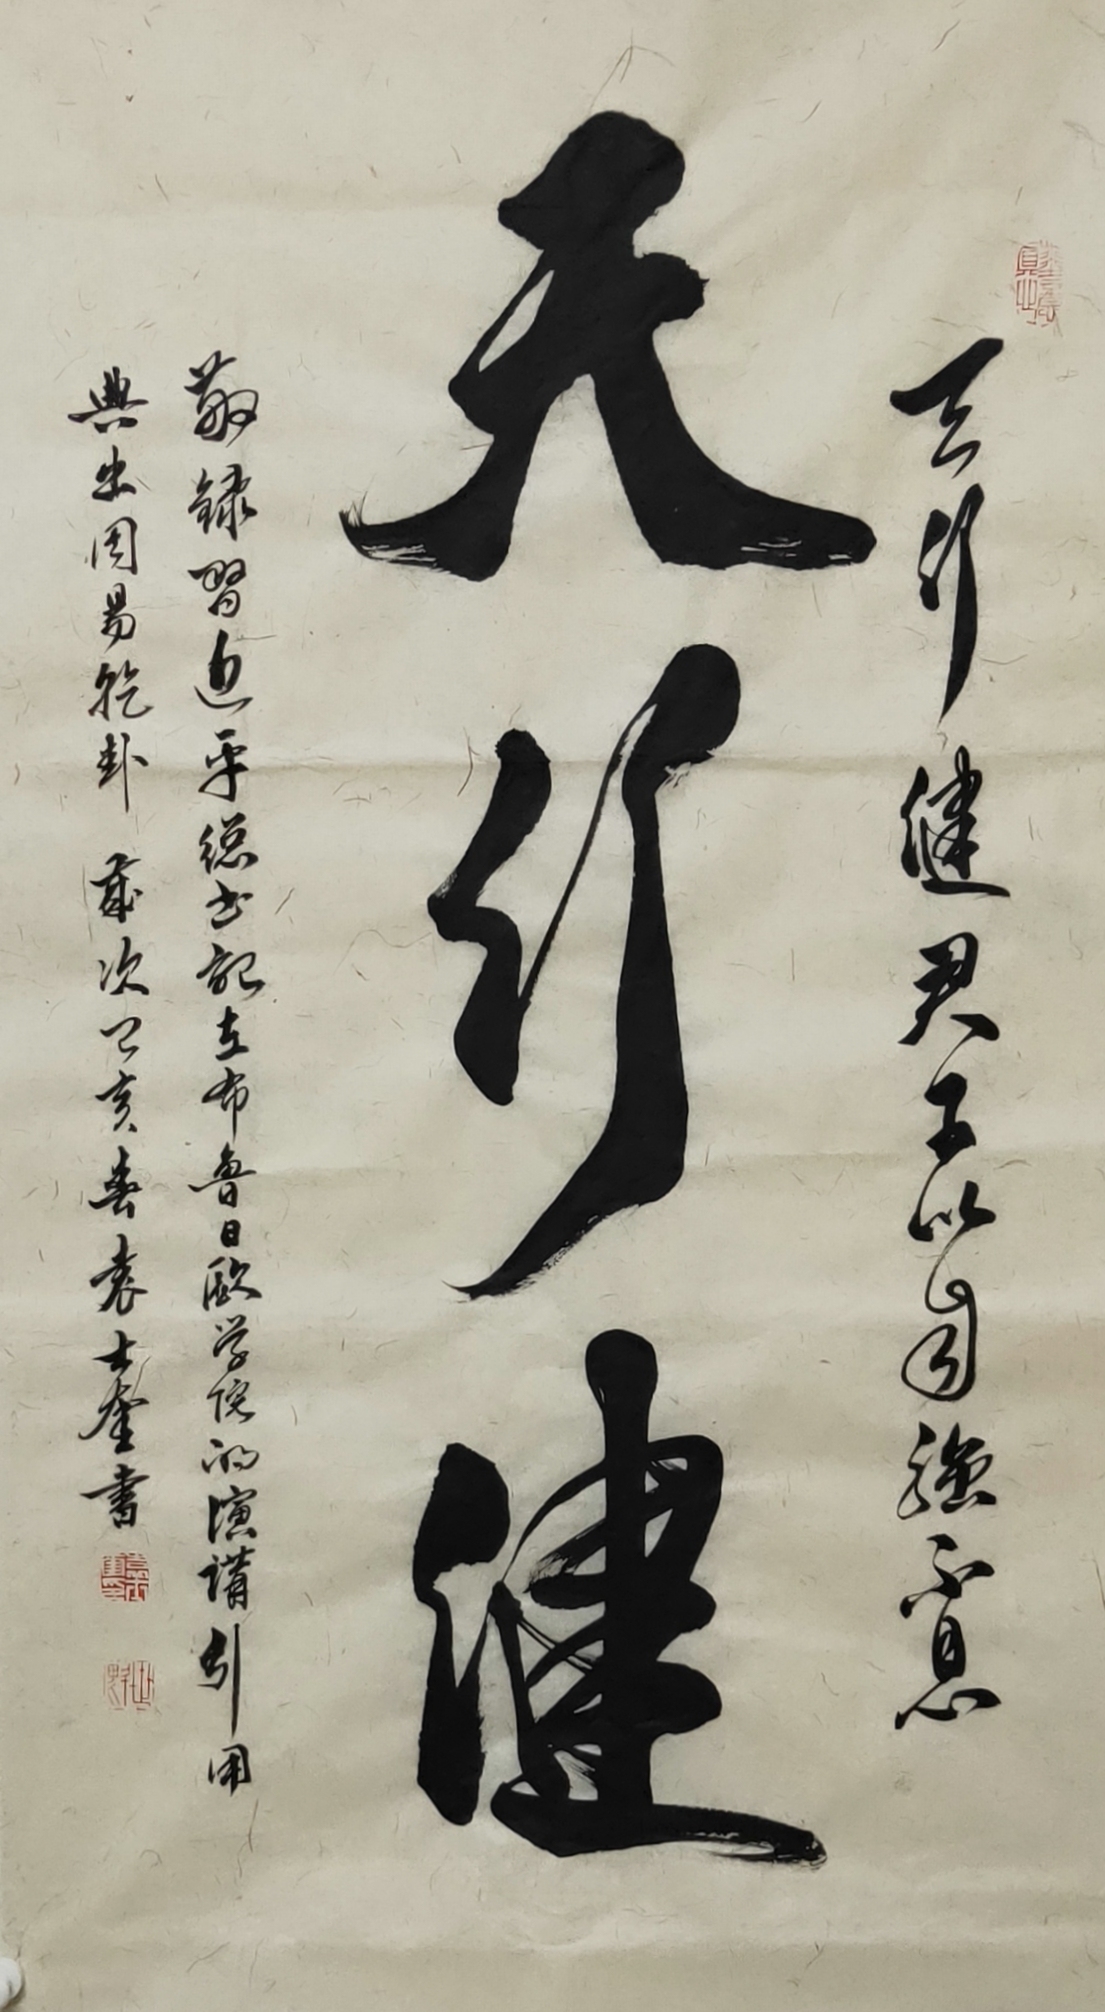 天行健君子以自强不息
天行健
敬録習近平總书記在布魯日欧学院的演講引用
典出周易乾卦 歲次己亥春袁士奎書